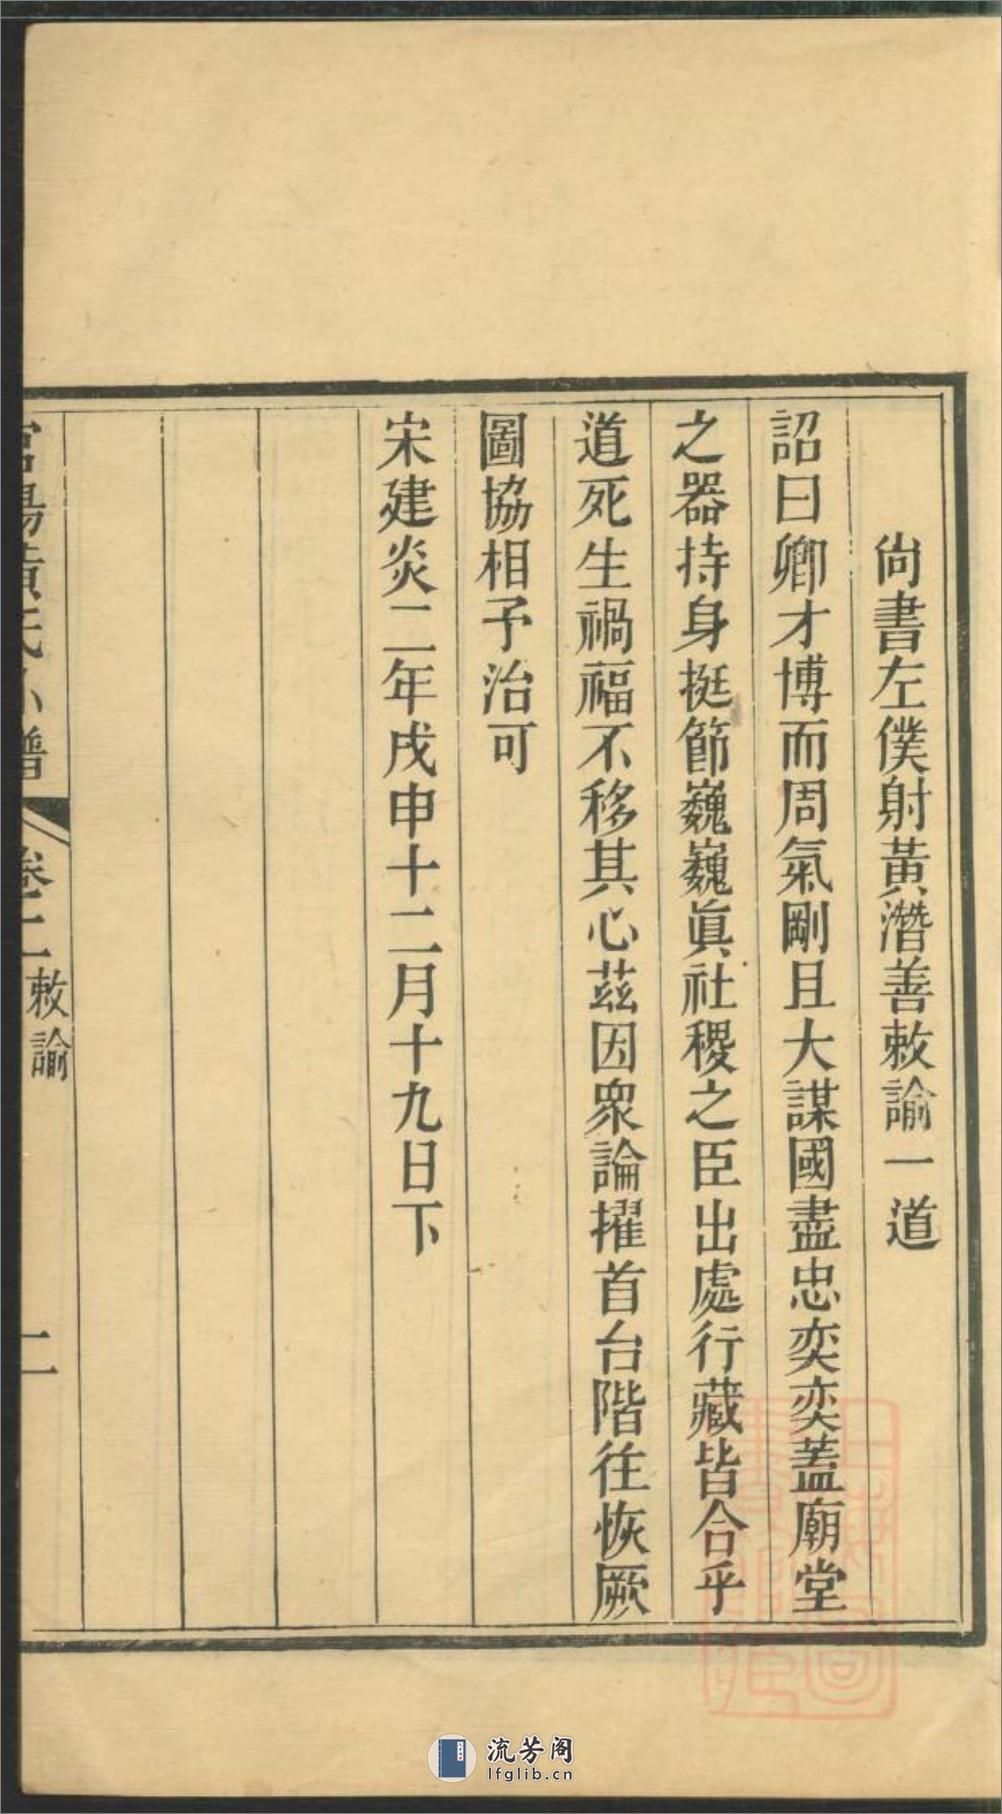 尙書左僕射黃潛善敕諭一道
詔曰卿才博而周氣剛且大謀國盡忠奕奕蓋廟堂
之器持身挺節巍巍眞社稷之臣出處行藏皆合乎
道死生禍福不移其心茲因衆論擢首台階往恢厥
圖協相予治可
宋建炎二年戌申十二月十九日下
宫陽黃氏小譜 卷二 敕諭 二
流芳阁
lfglib.cn